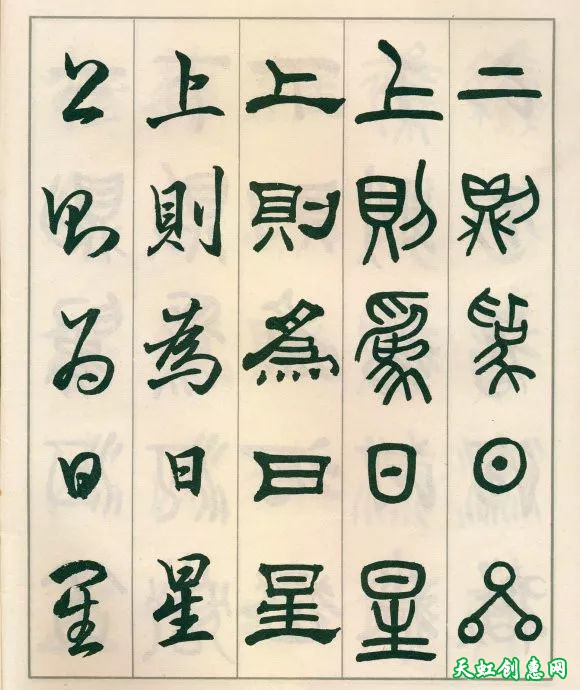 上則為日星
上則為日星
上則為日星
上則為日星
上則為日星
天虹创惠网